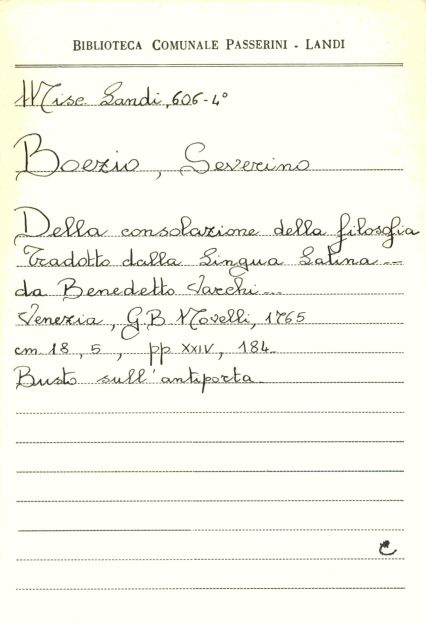 BIBLIOTECA COMUNALE PASSERINI - LANDI
Misc. Landi, 606-4°
Boezio, Severino
Della consolazione della filosofia
Tradotto dalla Lingua Latina...
da Benedetto Varchi...
Venezia, G.B Novelli, 1765
cm 18,5, pp XXIV, 184.
Busto sull'antiporta.
c